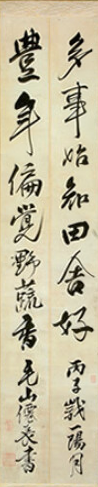 多事始知田舍好
丙子歲一陽月
豐年偏覺野蔬香
山僊書